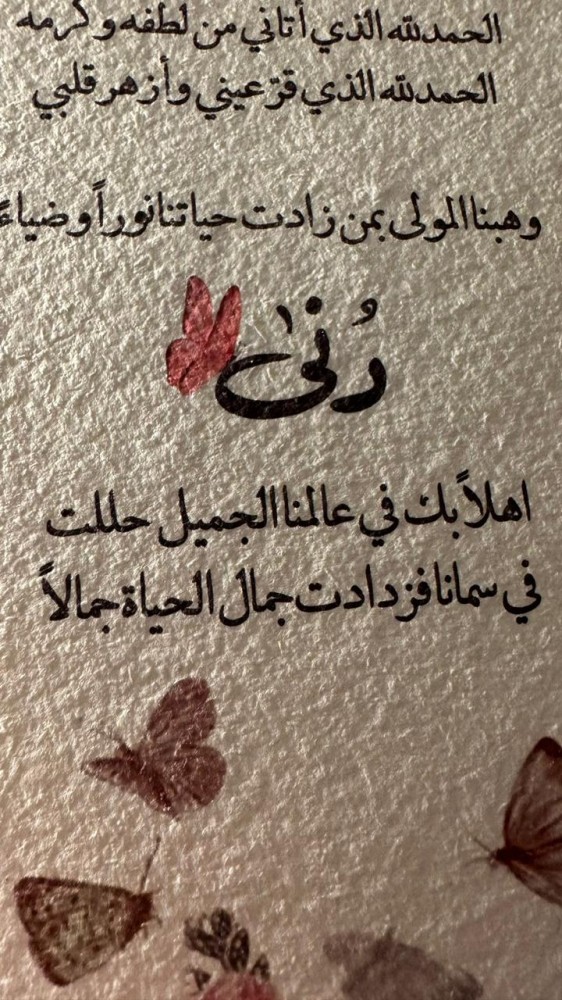 الحمدلله الذي أتاني من لطفه وكرمه
الحمدلله الذي قرّ عيني وأزهر قلبي
وهبنا المولى بمن زادت حياتنا نوراً وضياءً
دُنىٰ
اهلاً بك في عالمنا الجميل حللت
في سمانا فزدادت جمال الحياة جمالاً